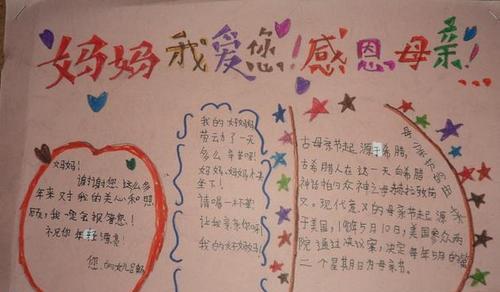 妈妈我爱您！感恩母亲！
妈妈！
谢谢您这么多
年来对我的关心和照
顾，我一定会报答您！
祝您年轻漂亮！
您的女儿
我的好妈妈
劳动了一天
多么辛苦呀！
妈妈，妈妈
坐下！
请喝一杯茶
让我亲亲你呀
我的好妈妈
母亲节的由来
古母亲节起源于希腊，
古希腊人在这一天向希腊
神话的众神之母赫拉致敬
义。现代意义的母亲节起源
于美国，1913年5月10日，美国参众两
院通过决议案，决定每年5月的第
二个星期日为母亲节。